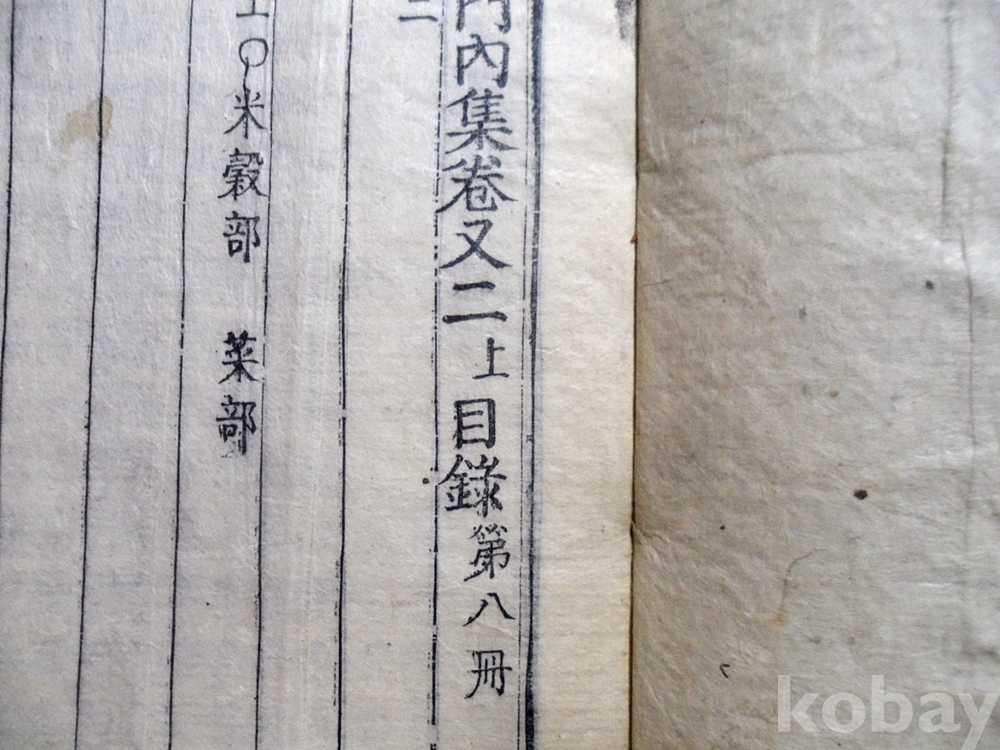 門內集卷又二上目錄第八冊
二
上〇米穀部 菜部
kobay